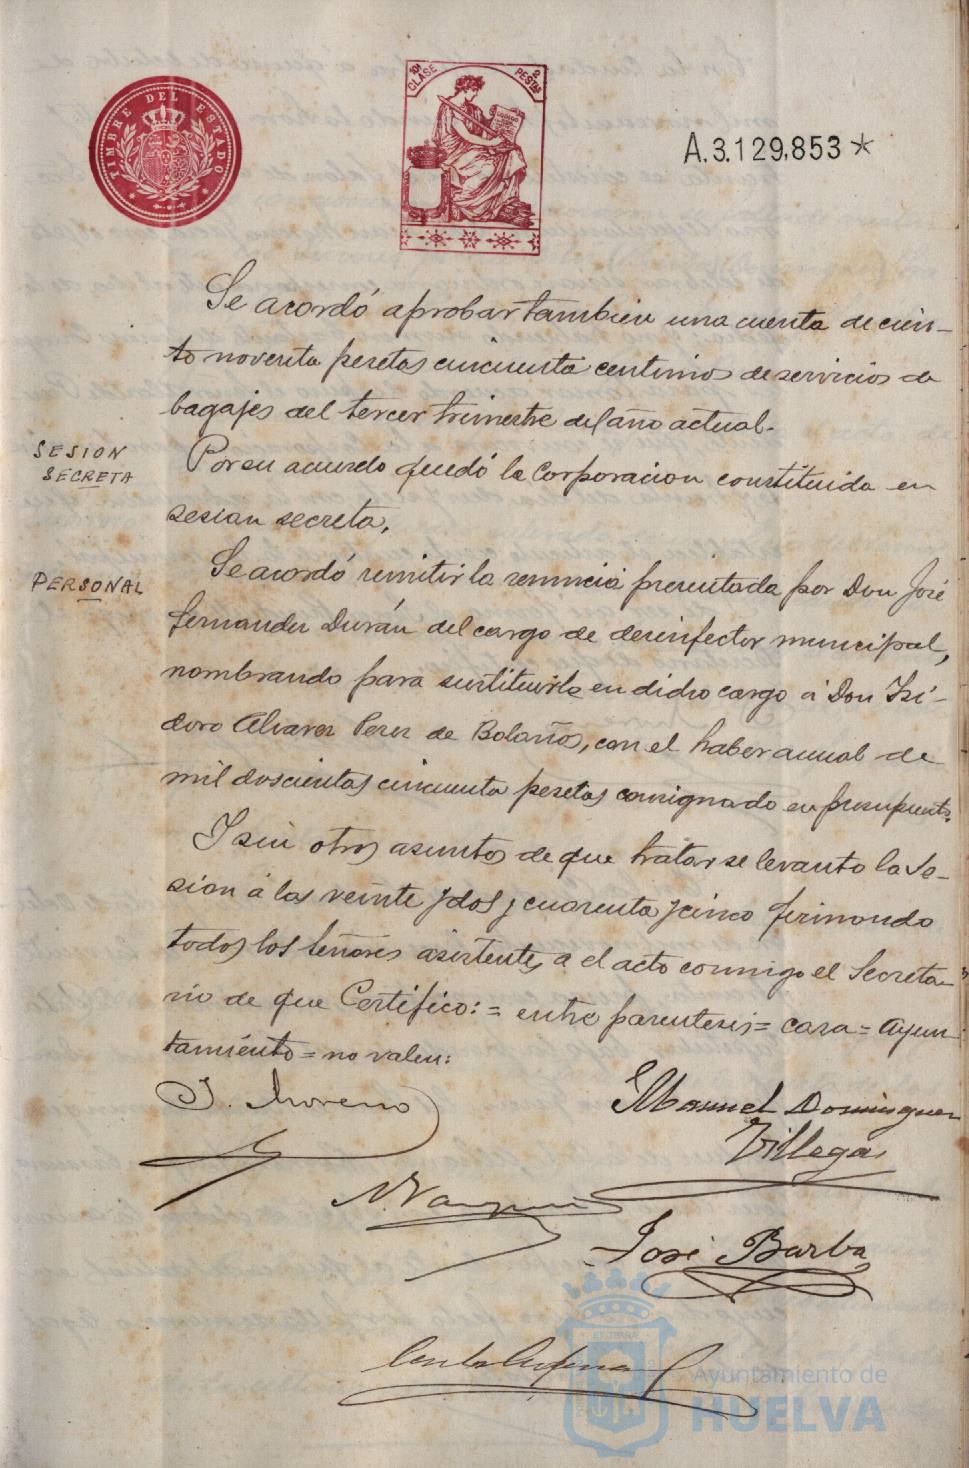 TIMBRE DEL ESTADO
10ª CLASE
2 PESTAS
A.3.129,853*
Se acordó aprobar tambien una cuenta de cien-
to noventa pesetas cincuenta centimos de servicios de
bagajes del tercer trimestre del año actual.
SESION
SECRETA
Por su acuerdo quedó la Corporacion constituida en
sesion secreta.
PERSONAL
Se acordó remitir la renuncia presentada por Don José
Fernandez Durán del cargo de desinfector municipal,
nombrando para sustituirle en dicho cargo á Don Isi-
doro Alvarez Perez de Bolaños, con el haber anual de
mil doscientas cincuenta pesetas consignado en presupuesto.
Y sin otros asuntos de que tratar se levanto la se-
sion á las veinte y dos y cuarenta y cinco firmando
todos los señores asistentes a el acto conmigo el Secreta-
rio de que Certifico:= entre parentesis= casa= Ayun-
tamiento= no valen:
J. Moreno
Manuel Dominguez
Villegas
José Barba
Ayuntamiento de
HUELVA